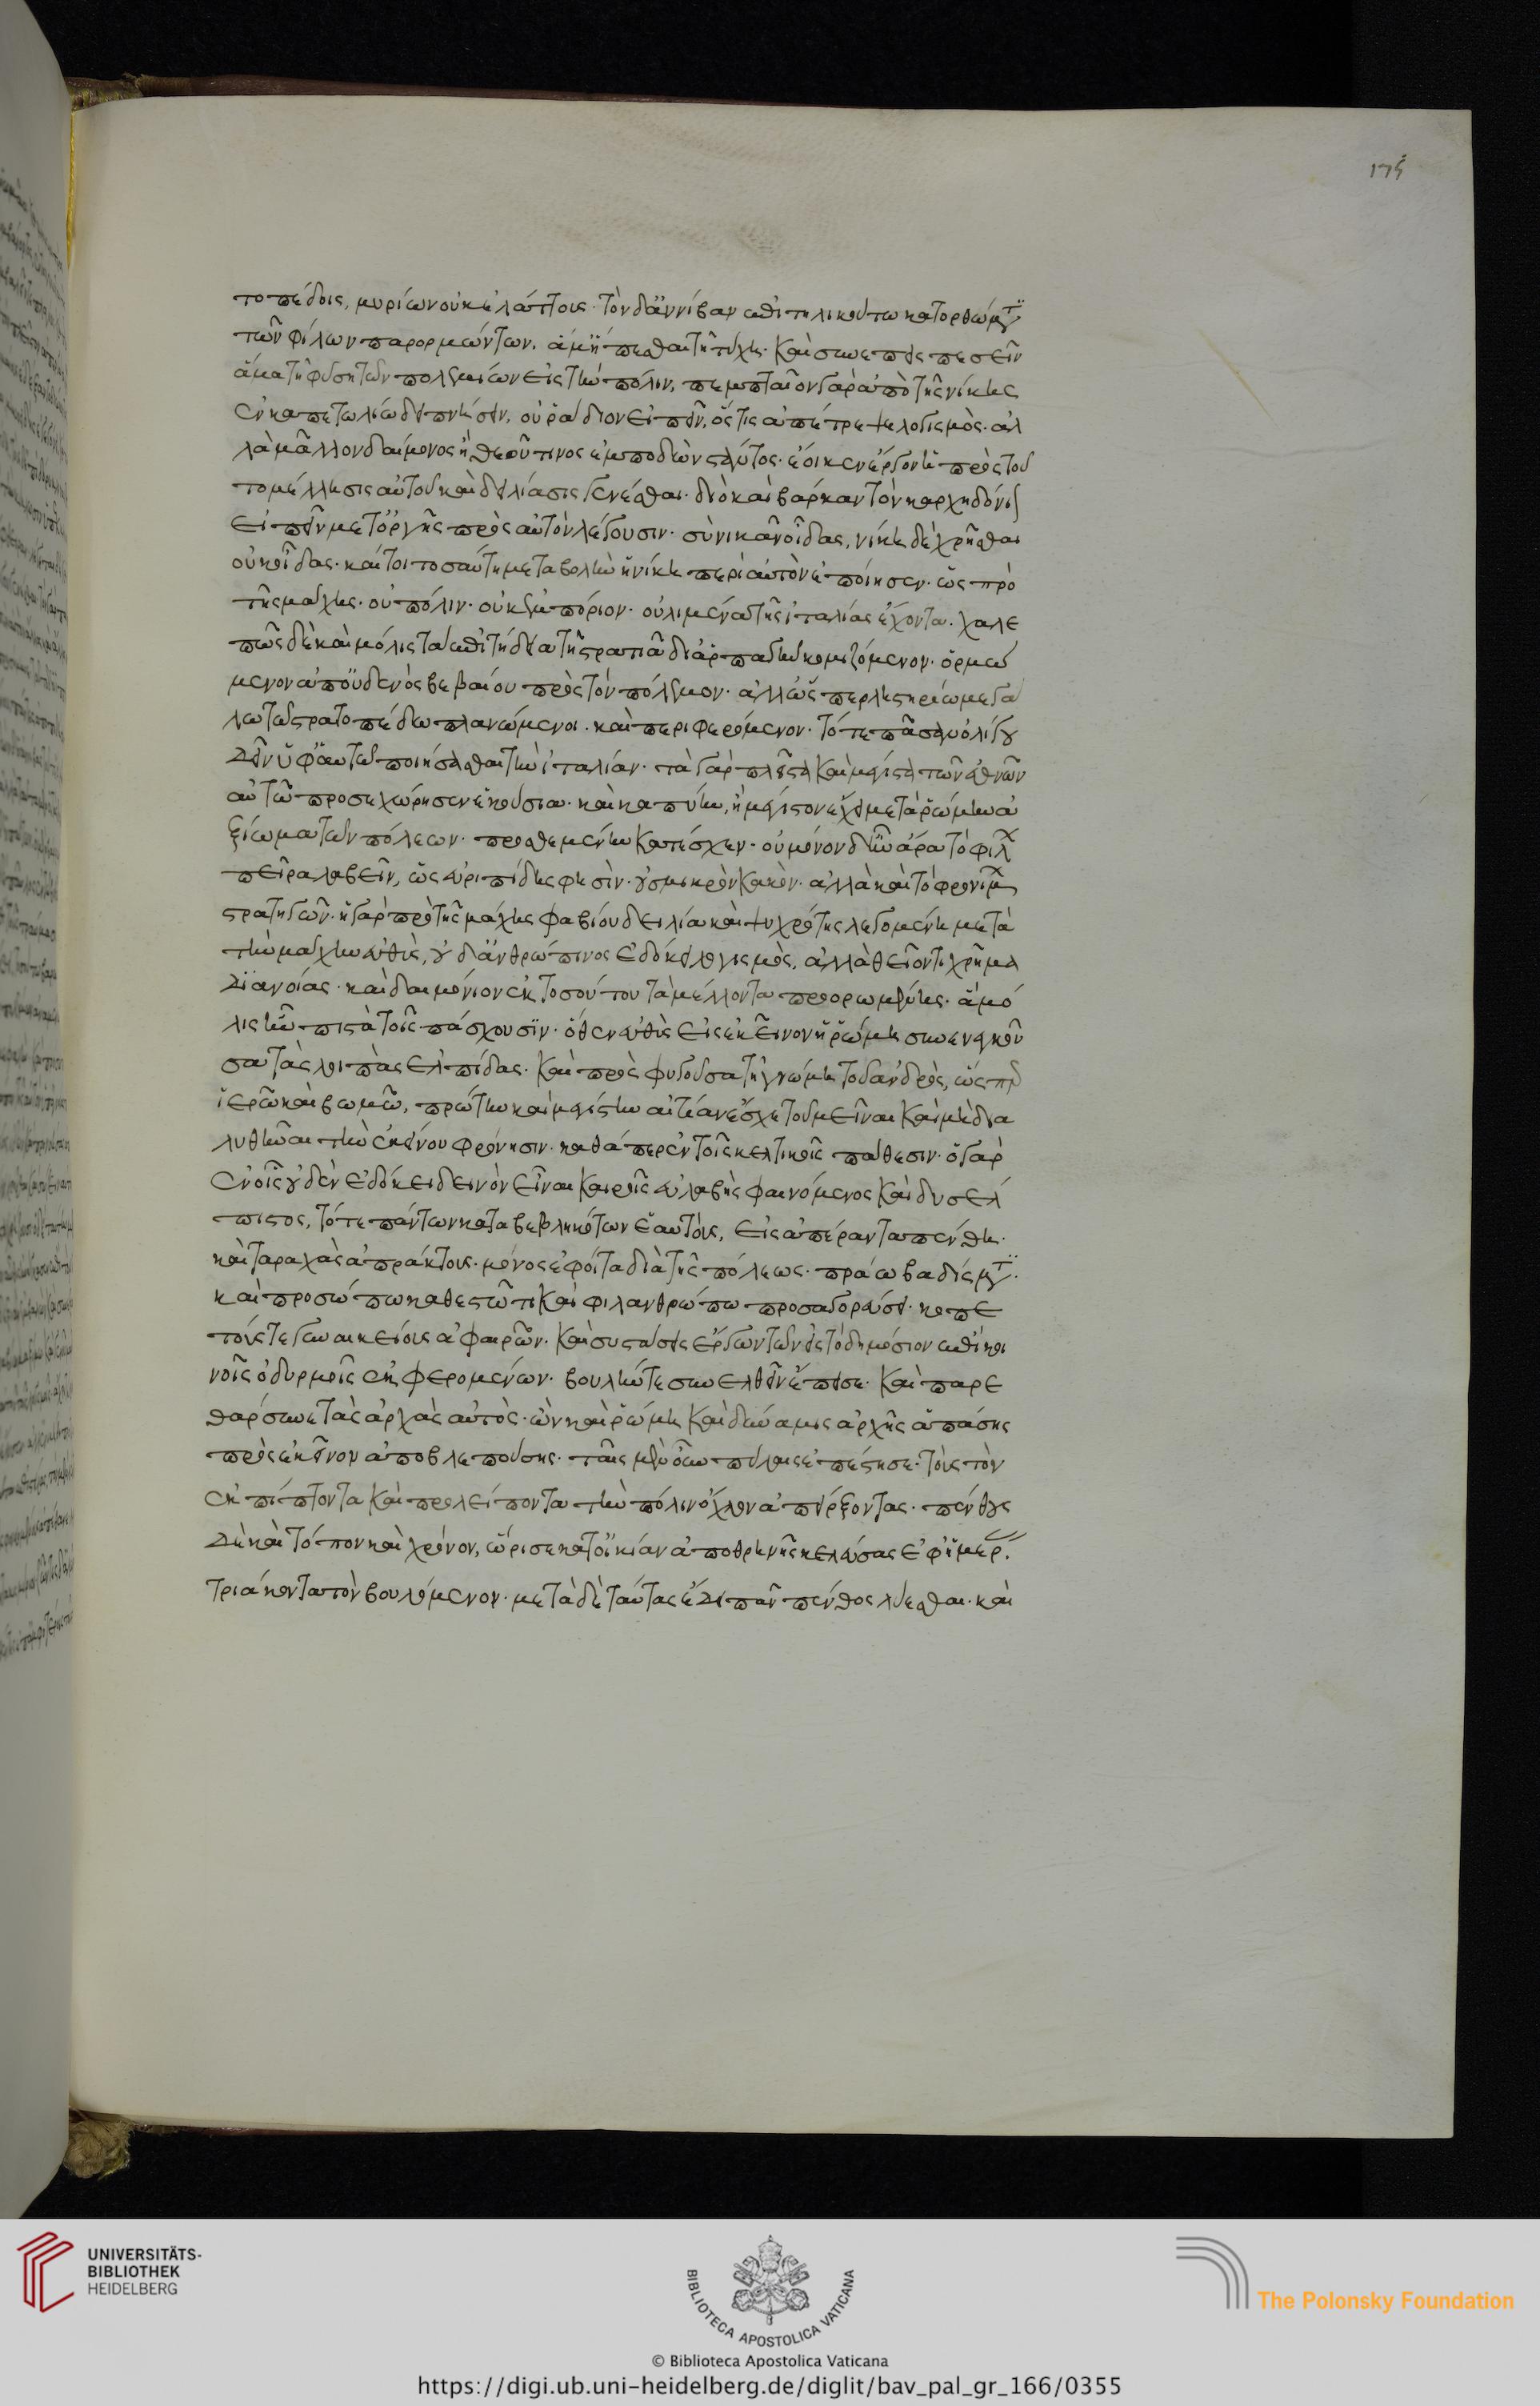 175
τοπέδοις, μυρίων οὐκ ἐλάττους· τὸν δ' ἀννίβαν ἐπὶ τηλικούτω κατορθώματι
τῶν φίλων παρορμώντων, ἅμ' ἕπεσθαι τῇ τύχῃ· καὶ συνεπεισπεσεῖν
ἅμα τῇ φυγῇ τῶν πολεμίων εἰς τὴν πόλιν, πεμπταῖον γὰρ ἀπὸ τῆς νίκης
ἐν καπετωλίω δειπνήσειν, οὐ ῥάδιον εἰπεῖν, ὅστις ἀπέτρεψε λογισμὸς· ἀλ
λὰ μᾶλλον δαίμονος ἢ θεοῦ τινος ἐμποδὼν στάντος· ἔοικεν ἔργον ἡ πρὸς τοῦ
το μέλλησις αὐτοῦ καὶ δειλίασις γενέσθαι· διὸ καὶ βάρκαν τὸν καρχηδόνιον
εἰπεῖν μετ' ὀργῆς πρὸς αὐτὸν λέγουσιν· σὺ νικᾶν οἶδας, νίκῃ δὲ χρῆσθαι
οὐκ οἶδας· καίτοι τοσαύτην μεταβολὴν ἡ νίκη περὶ αὐτὸν ἐποίησεν· ὡς πρὸ
τῆς μάχης· οὐ πόλιν· οὐκ ἐμπόριον· οὐ λιμένα τῆς ἰταλίας ἔχοντα· χαλε
πῶς δὲ καὶ μόλις τὰ ἐπιτήδεια τῇ στρατιᾷ δι' ἁρπαγὴν κομιζόμενον· ὁρμώ
μενον ἀπ' οὐδενὸς βεβαίου πρὸς τὸν πόλεμον· ἀλλ' ὥσπερ ληστηρίω μεγά
λω τῶ στρατοπέδω πλανώμενοι· καὶ περιφερόμενον· τότε πᾶσαν ὀλίγου
δεῖν ὑφ' αὑτῶ ποιήσασθαι τὴν ἰταλίαν· τὰ γὰρ πλεῖστα καὶ μέγιστα τῶν ἐθνῶν
αὐτῶ προσεχώρησεν ἑκούσια· καὶ καπύην, ἣ μέγιστον ἔχει μετὰ ῥώμην ἀ
ξίωμα τῶν πόλεων· προσθεμένην κατέσχεν· οὐ μόνον δ' ἦν ἄρα τὸ φίλων
πεῖραν λαβεῖν, ὡς εὐριπίδης φησίν· οὐ σμικρὸν κακὸν· ἀλλὰ καὶ τὸ φρονίμων
στρατηγῶν· ἡ γὰρ πρὸ τῆς μάχης φαβίου δειλία καὶ ψυχρότης λεγομένη μετὰ
τὴν μάχην εὐθὺς, οὐδ' ἀνθρώπινος ἐδόκει λογισμὸς, ἀλλὰ θεῖόν τι χρῆμα
διανοίας· καὶ δαιμόνιον ἐκ τοσούτου τὰ μέλλοντα προορωμένης· ἃ μό
λις ἦν πιστὰ τοῖς πάσχουσιν· ὅθεν εὐθὺς εἰς ἐκεῖνον ἡ ῥώμη συνενεγκοῦ
σα τὰς λοιπὰς ἐλπίδας· καὶ προσφυγοῦσα τῇ γνώμῃ τοῦ ἀνδρὸς, ὥσπερ
ἱερῶ καὶ βωμῶ, πρώτην καὶ μεγίστην αἰτίαν ἔσχε τοῦ μεῖναι καὶ μὴ δια
λυθῆναι τὴν ἐκείνου φρόνησιν· καθάπερ ἐν τοῖς κελτικοῖς πάθεσιν· ὁ γὰρ
ἐν οἷς οὐδὲν ἐδόκει δεινὸν εἶναι καιροῖς εὐλαβὴς φαινόμενος καὶ δυσέλ
πιστος, τότε πάντων καταβεβληκότων ἑαυτοὺς, εἰς ἀπέραντα πένθη·
καὶ ταραχὰς ἀπράκτους· μόνος ἐφοίτα διὰ τῆς πόλεως· πράω βαδίσματι·
καὶ προσώπω καθεστῶτι καὶ φιλανθρώπω προσαγορεύσει· κοπε
τούς τε γυναικείους ἀφαιρῶν· καὶ συστάσεις εἴργων τῶν εἰς τὸ δημόσιον ἐπὶ κοι
νοῖς ὀδυρμοῖς ἐκφερομένων· βουλήν τε συνελθεῖν ἔπεισε· καὶ παρε
θάρσυνε τὰς ἀρχὰς αὐτὸς· ὢν καὶ ῥώμη καὶ δύναμις ἀρχῆς ἁπάσης
πρὸς ἐκεῖνον ἀποβλεπούσης· ταῖς μὲν οὖν πύλαις ἐπέστησε· τοὺς τὸν
ἐκπίπτοντα καὶ προλείποντα τὴν πόλιν ὄχλον ἀπείρξοντας· πένθους
δὲ καὶ τόπον καὶ χρόνον, ὥρισε κατ' οἰκίαν ἀποθρηνεῖν κελεύσας ἐφ' ἡμέρας
τριάκοντα τὸν βουλόμενον· μετὰ δὲ ταύτας ἔδει πᾶν πένθος λύεσθαι· καὶ
UNIVERSITÄTS-
BIBLIOTHEK
HEIDELBERG
BIBLIOTECA APOSTOLICA VATICANA
© Biblioteca Apostolica Vaticana
The Polonsky Foundation
https://digi.ub.uni-heidelberg.de/diglit/bav_pal_gr_166/0355